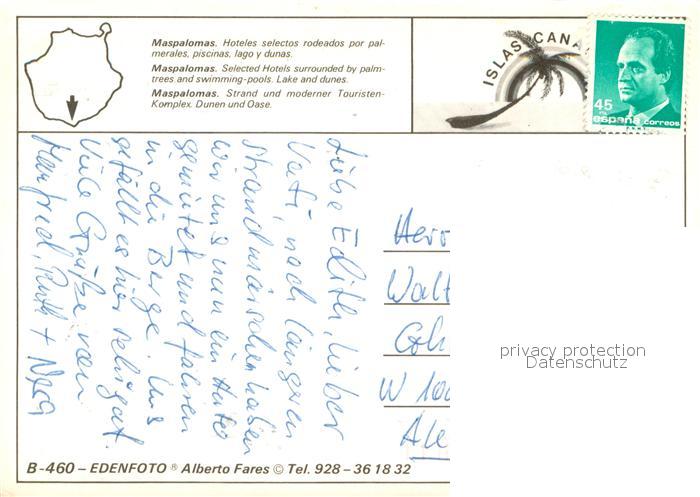 Maspalomas. Hoteles selectos rodeados por pal-
merales, piscinas, lago y dunas.
Maspalomas. Selected Hotels surrounded by palm-
trees and swimming-pools. Lake and dunes.
Maspalomas. Strand und moderner Touristen-
Komplex. Dunen und Oase.
ISLAS CANA
45
PTA
españa correos
Liebe Edith, lieber
Vati, nach langen
Strandmärschen haben
wir uns nun ein Auto
gemietet und fahren
in die Berge. Uns
gefällt es hier sehr gut.
Viele Grüße von
Manfred, Ruth +
Herr
Walt
W 100
Ale
privacy protection
Datenschutz
B-460 – EDENFOTO ® Alberto Fares © Tel. 928 - 36 18 32